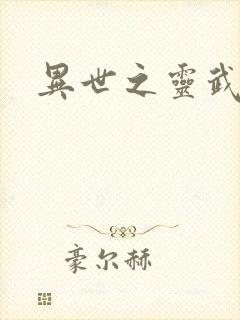 異世之靈武
豪尔赫